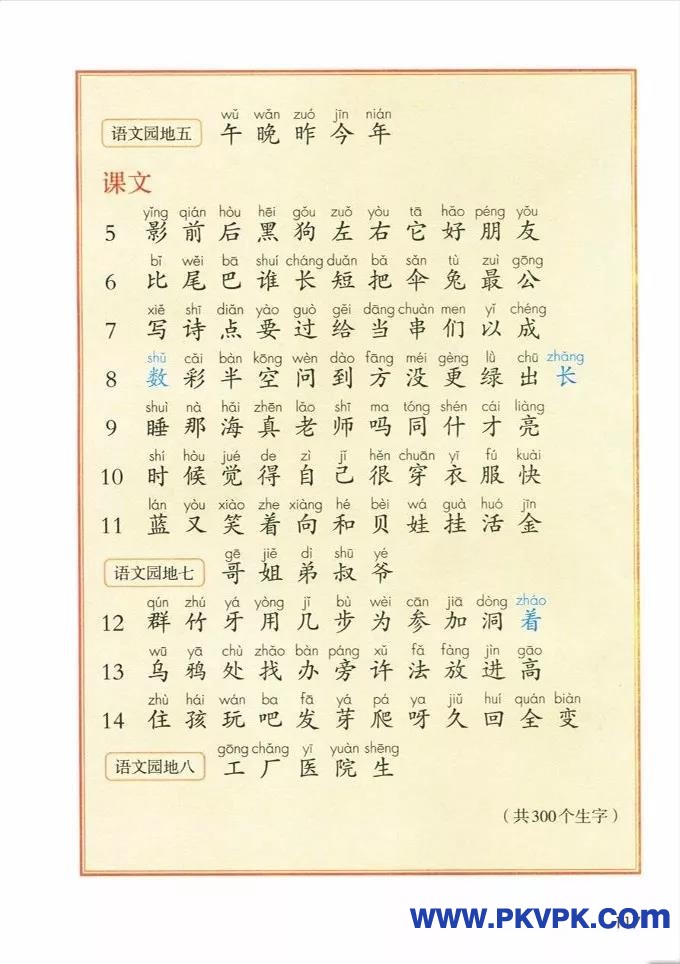 wǔ wǎn zuó jīn nián
语文园地五 午 晚 昨 今 年
课文
yǐng qián hòu hēi gǒu zuǒ yòu tā hǎo péng yǒu
5 影 前 后 黑 狗 左 右 它 好 朋 友
bǐ wěi bā shuí cháng duǎn bǎ sǎn tù zuì gōng
6 比 尾 巴 谁 长 短 把 伞 兔 最 公
xiě shī diǎn yào guò gěi dāng chuàn men yǐ chéng
7 写 诗 点 要 过 给 当 串 们 以 成
shǔ cǎi bàn kōng wèn dào fāng méi gèng lǜ chū zhǎng
8 数 彩 半 空 问 到 方 没 更 绿 出 长
shuì nà hǎi zhēn lǎo shī ma tóng shén cái liàng
9 睡 那 海 真 老 师 吗 同 什 才 亮
shí hòu jué de zì jǐ hěn chuān yī fú kuài
10 时 候 觉 得 自 己 很 穿 衣 服 快
lán yòu xiào zhe xiàng hé bèi wá guà huó jīn
11 蓝 又 笑 着 向 和 贝 娃 挂 活 金
gē jiě dì shū yé
语文园地七 哥 姐 弟 叔 爷
qún zhú yá yòng jǐ bù wèi cān jiā dòng zháo
12 群 竹 牙 用 几 步 为 参 加 洞 着
wū yā chù zhǎo bàn páng xǔ fǎ fàng jìn gāo
13 乌 鸦 处 找 办 旁 许 法 放 进 高
zhù hái wán ba fā yá pá ya jiǔ huí quán biàn
14 住 孩 玩 吧 发 芽 爬 呀 久 回 全 变
gōng chǎng yī yuàn shēng
语文园地八 工 厂 医 院 生
（共300个生字）
www.PKVPK.com